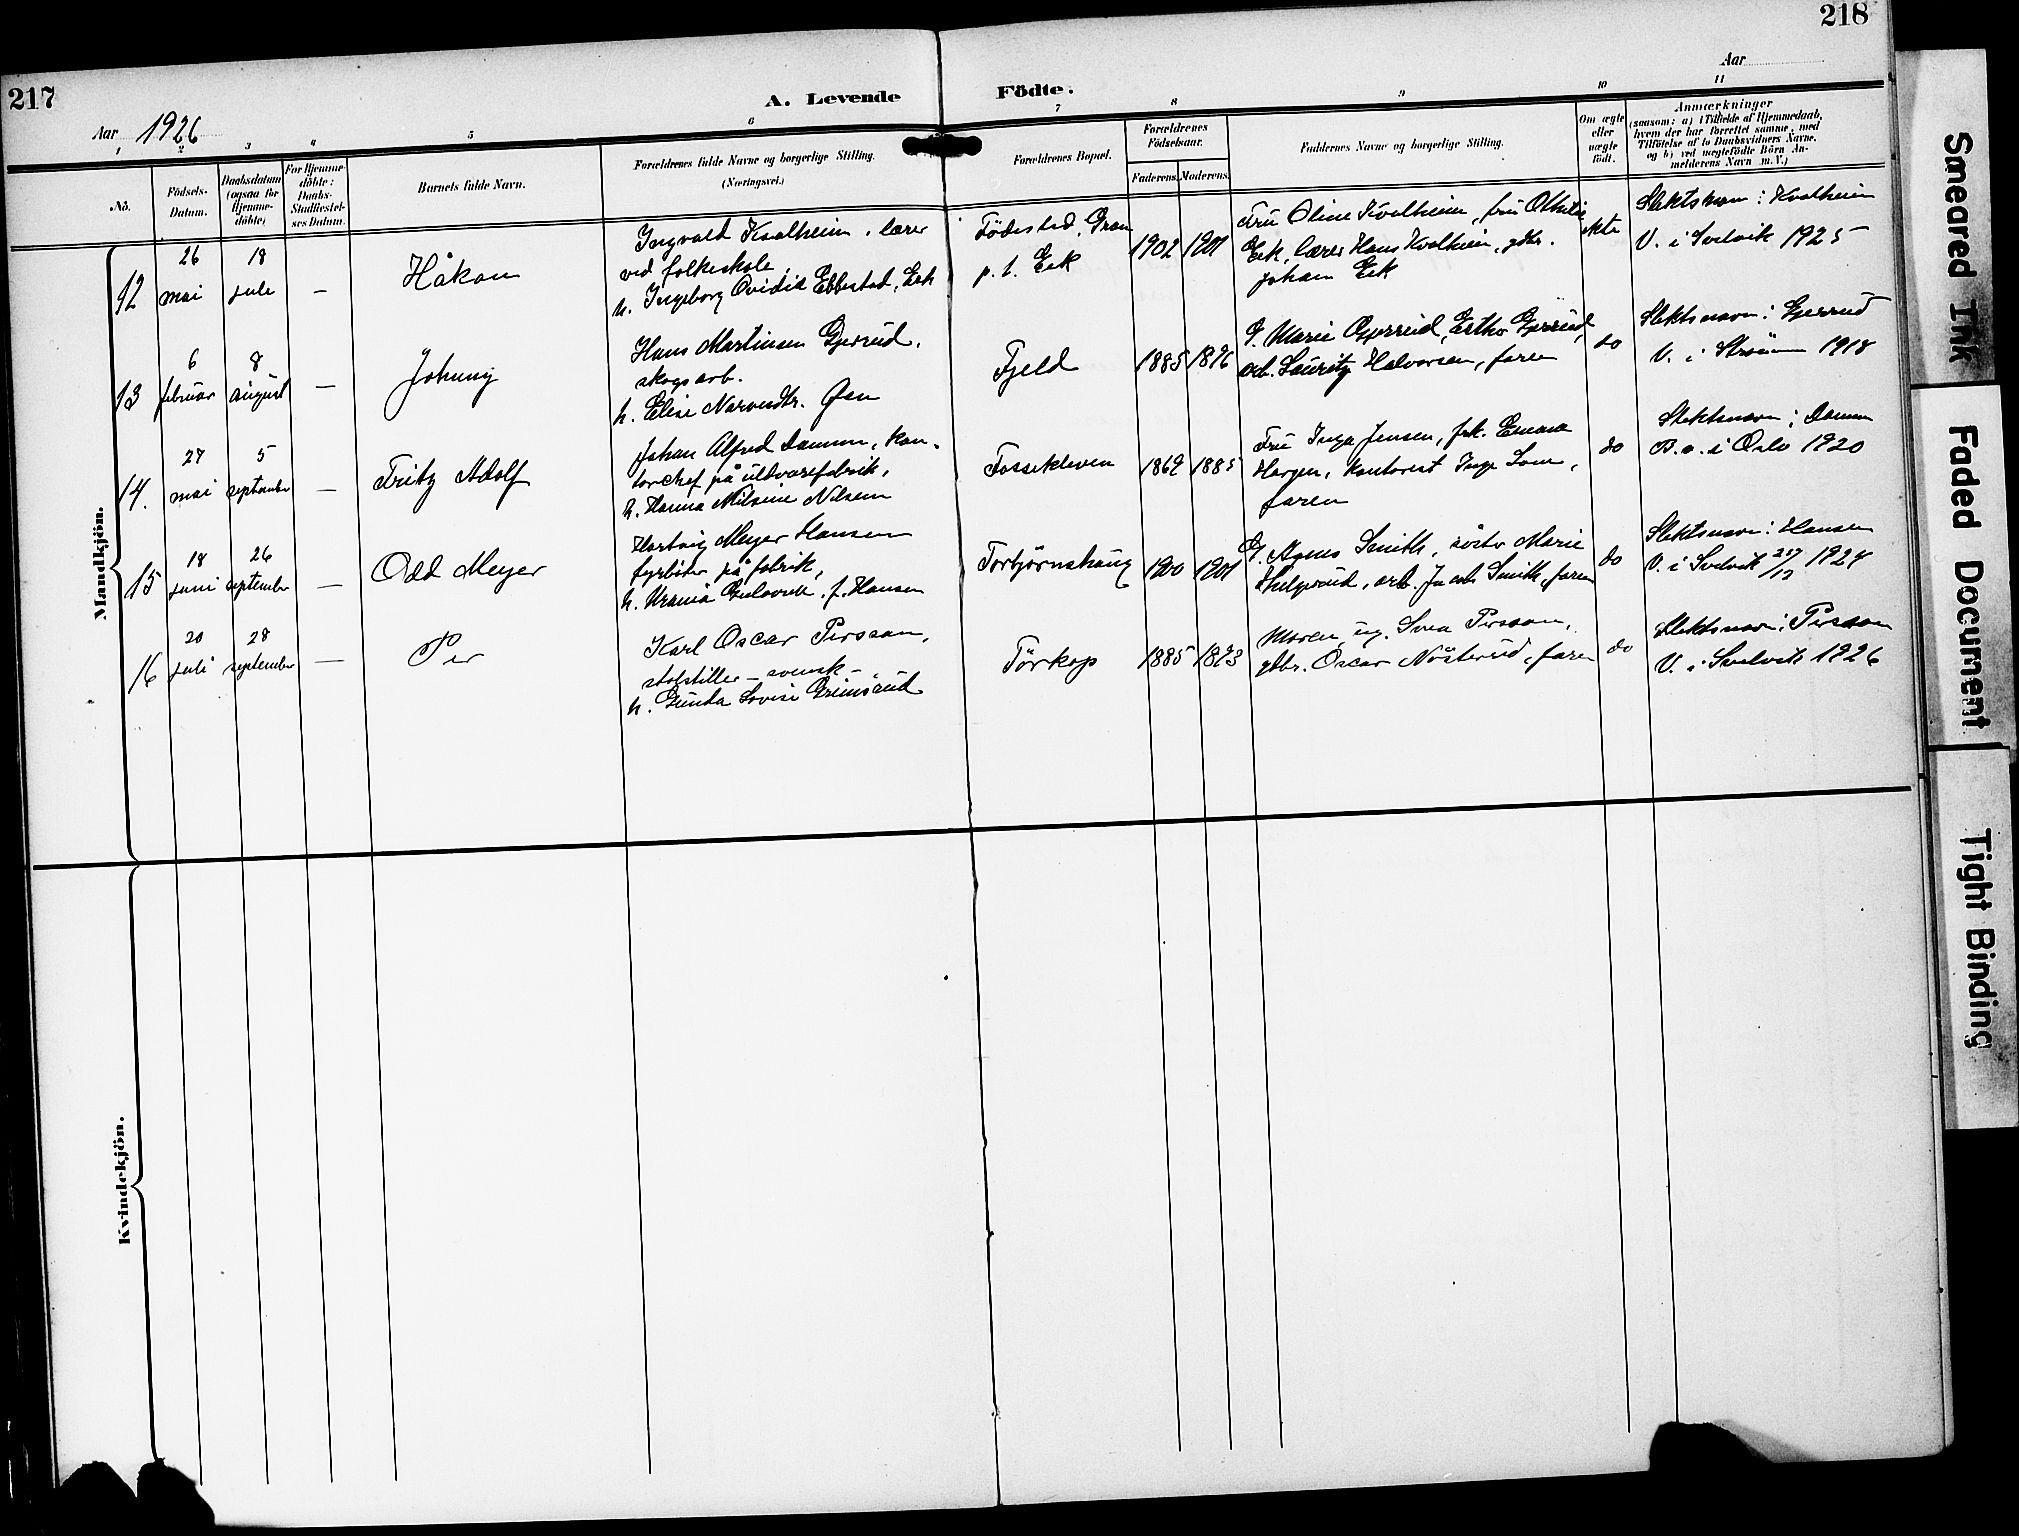 217
218
A. Levende Födte.
Aar 1926
Aar
1 2 3 4 5 6 7 8 9 10 11
No.
Födsels-
Datum.
Daabsdatum
(ogsaa for
Hjemme-
döbte)
For Hjemme-
döbte:
Daabs-
Stadfæstel-
ses Datum.
Barnets fulde Navn.
Forældrenes fulde Navne og borgerlige Stilling.
(Næringsvei.)
Forældrenes Bopæl.
Forældrenes
Födselsaar.
Faderens. Moderens.
Faddernes Navne og borgerlige Stilling.
Om ægte
eller
uægte
født.
Anmærkninger
(saasom: a) i Tilfælde af Hjemmedaab,
hvem der har forrettet samme, med
Tilföielse af to Daabsvidners Navne.
og b) ved uægtefødte Börn An-
melderens Navn m. V.)
Mandkjön.
12
26
mai
18
juli
—
Håkon
Ingvald Kvalheim, lærer
ved folkeskole,
h. Ingeborg Ovidia Ebbestad, Eek
Födested, Gran
p. t. Eek
1902 1901
Fru Oline Kvalheim, fru Othilie
Eek, lærer Hans Kvalheim, gbr.
Johan Eek
ekte
Slektsnavn: Kvalheim
V. i Svelvik 1925
13
6
februar
8
august
—
Johnny
Hans Martinsen Gjerrud,
skogsarb.
h. Elise Narvesdtr. Øen
Fjeld
1885 1896
G. Marie Gjerrud, Esther Gjerrud,
arb. Lauritz Halvorsen, faren
do
Slektsnavn: Gjerrud
V. i Strøm 1918
14.
27
mai
5
september
—
Fritz Adolf
Johan Alfred Damm, kon-
torchef på uldvarefabrik,
h. Hanna Nilsine Nilsen
Fossekleven
1869 1885
Fru Inga Jensen, frk. Emma
Horgen, kontorist Inge Lom,
faren
do
Slektsnavn: Damm
B. v. i Oslo 1920
15
18
juni
26
september
—
Odd Meyer
Hartvig Meyer Hansen
fyrböter på fabrik,
h. Urania f. Hansen
Torbjörnskaug
1900 1901
G. Agnes Smith, söster Marie
arb. Jacob Smith, faren
do
Slektsnavn: Hansen
V. i Svelvik 27/12 1924
16
20
juli
28
september
—
Per
Karl Oscar Persson,
stolstiller - svensk -
h. Gunda Lovise Grimsrud
Törkop
1885 1893
Moren, ug. Svea Persson,
gbr. Oscar Nösterud, faren
do
Slektsnavn: Persson
V. i Svelvik 1926
Kvindekjön.
Smeared Ink
Faded Document
Tight Binding